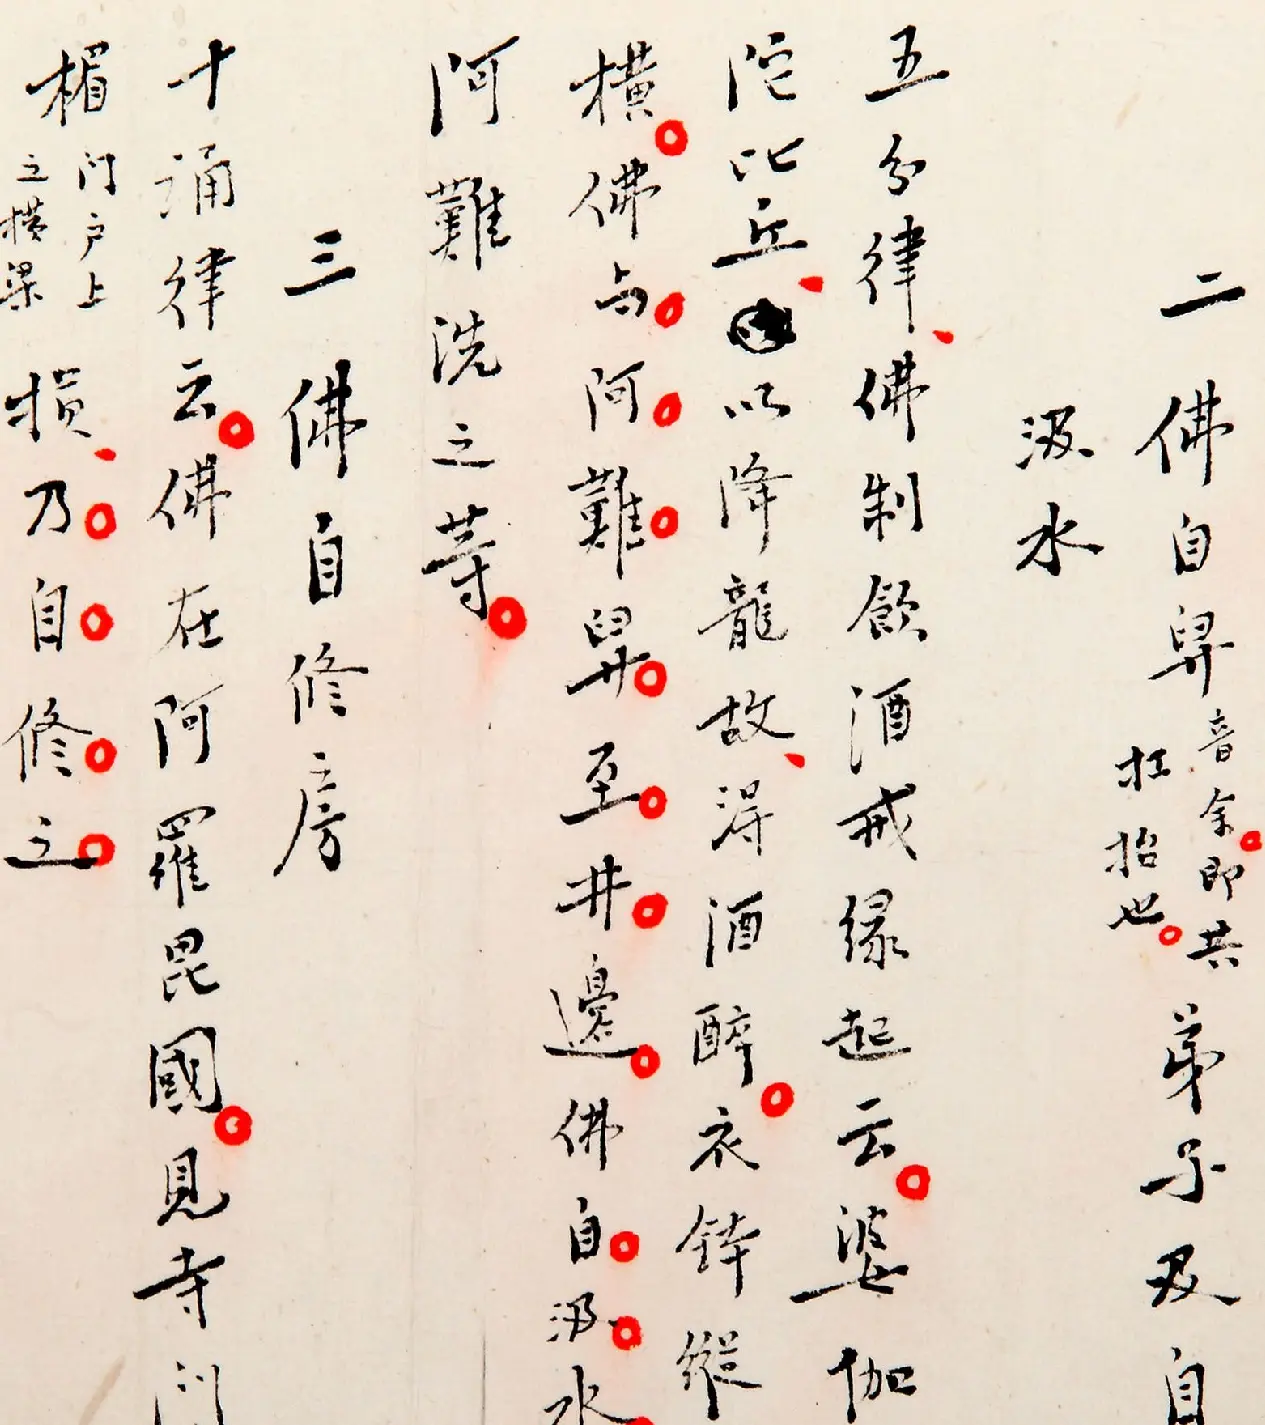 二 佛自舁音余。即共扛抬也。弟子及自
汲水
五分律、佛制飲酒戒緣起云。婆伽
陀比丘、以降龍故、得酒醉。衣鉢縱
橫。佛与阿難舁至井邊。佛自汲水
阿難洗之等。
三 佛自修房
十誦律云。佛在阿羅毘國。見寺门
楣门户上之橫梁損、乃自修之